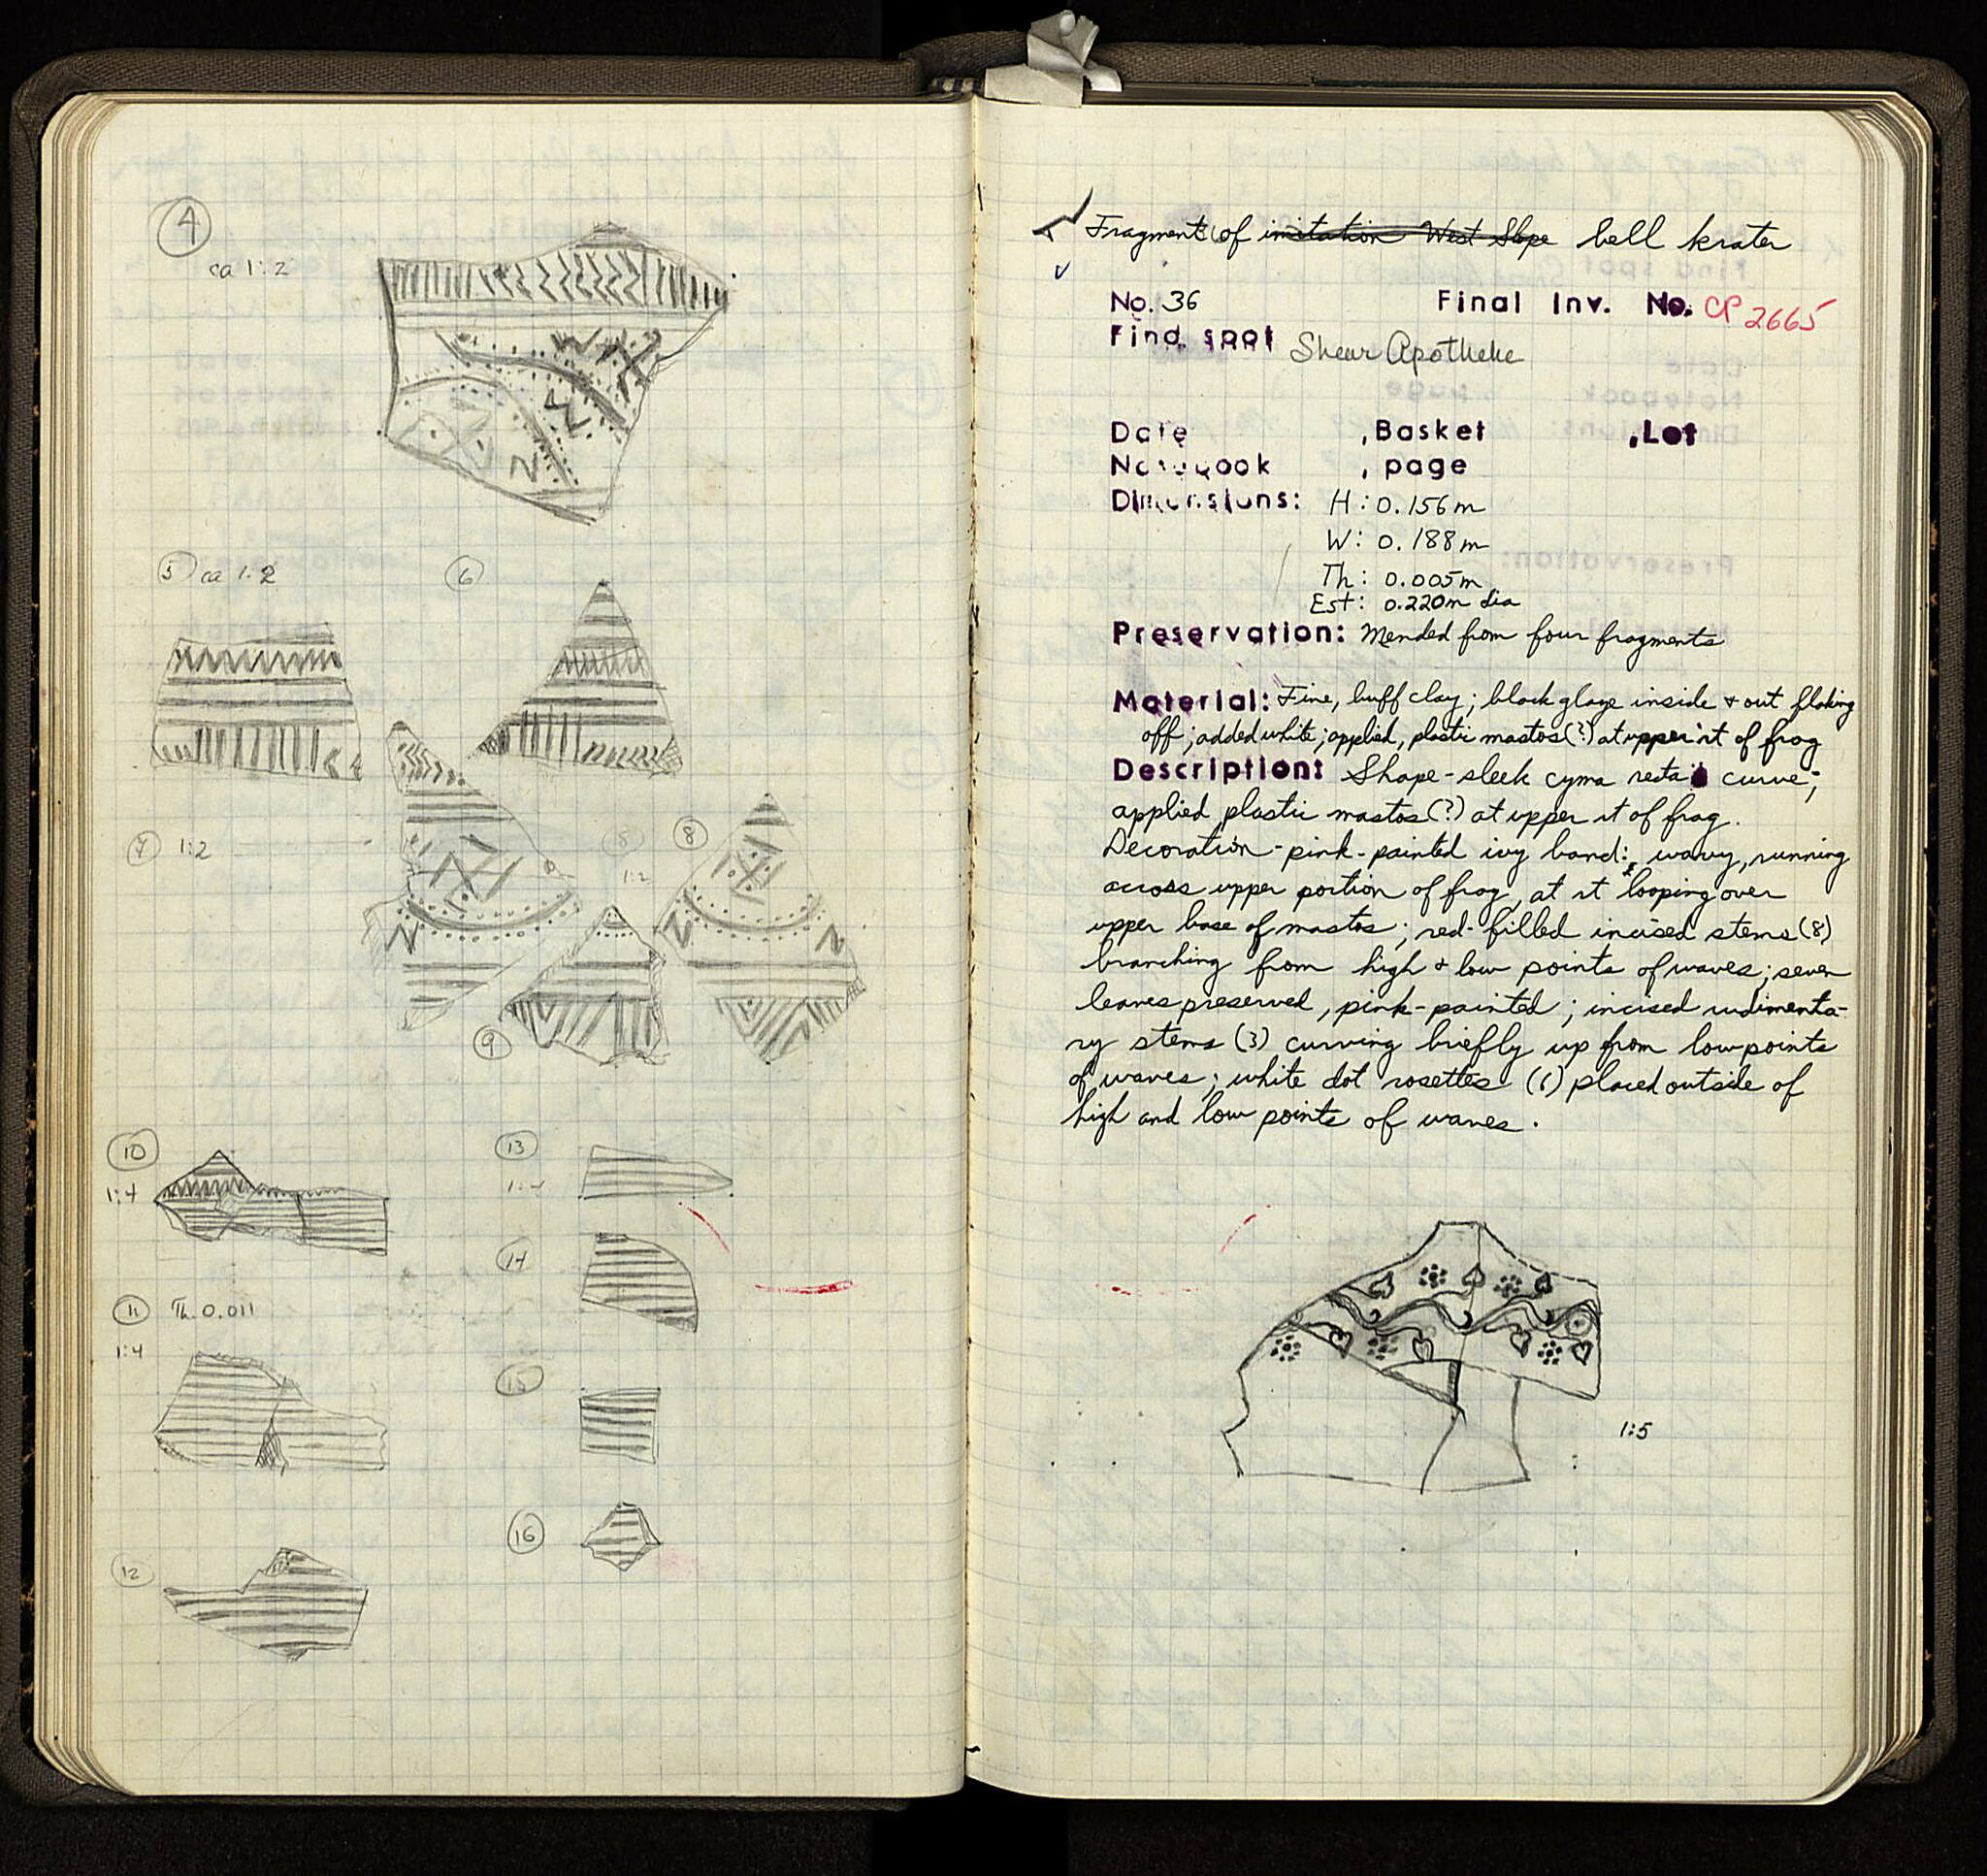 4
ca 1:2
5 ca 1:2
6
7 1:2
8
1:2
8
9
10
1:4
11 Th 0.011
1:4
12
13
14
15
16
Fragment of imitation West Slope bell krater
No. 36 Final Inv. No. CP 2665
Find spot Shear Apotheke
Date , Basket , Lot
Notebook , page
Dimensions: H: 0.156m
W: 0.188m
Th: 0.005m
Est: 0.220m dia
Preservation: Mended from four fragments
Material: Fine, buff clay; black glaze inside + out flaking
off; added white; applied, plastic mastos(?) at upper rt of frag
Description: Shape - sleek cyma recta curve;
applied plastic mastos(?) at upper rt of frag.
Decoration - pink-painted ivy band: wavy, running
across upper portion of frag, at rt looping over
upper base of mastos; red-filled incised stems (8)
branching from high + low points of waves; seven
leaves preserved, pink-painted; incised rudimenta-
ry stems (3) curving briefly up from low points
of waves; white dot rosettes (6) placed outside of
high and low points of waves.
1:5